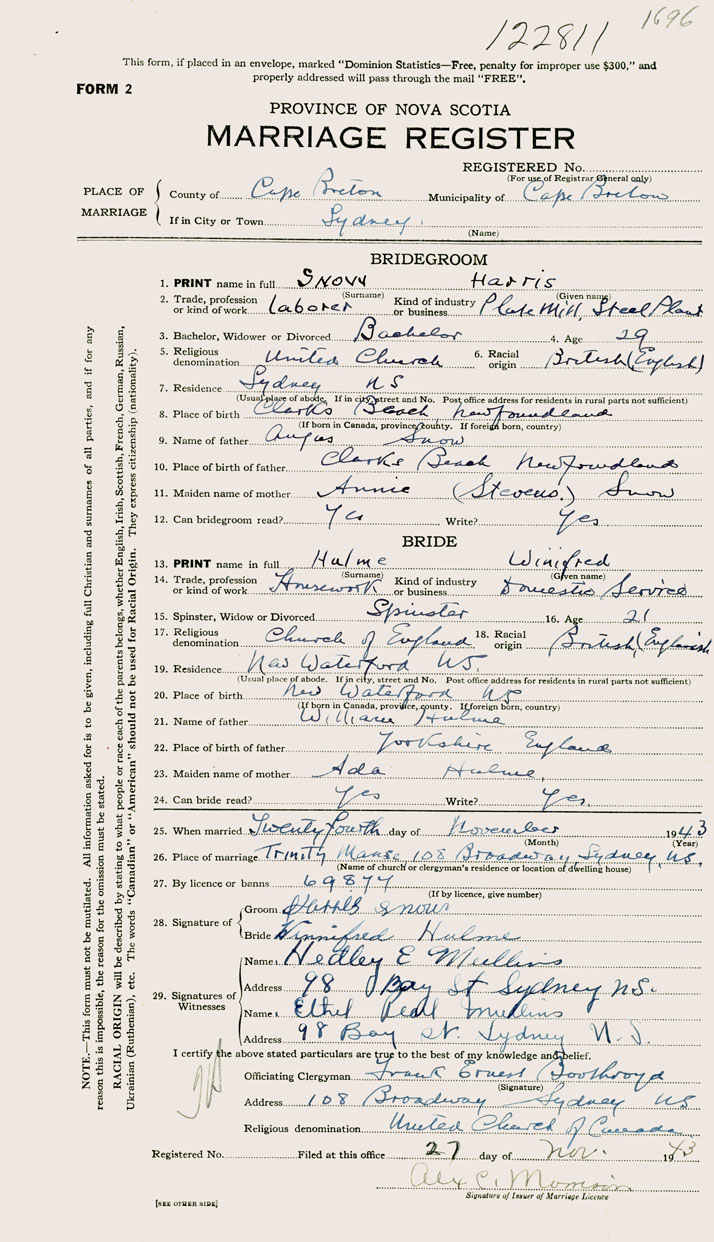 1696
122811
This form, if placed in an envelope, marked "Dominion Statistics—Free, penalty for improper use $300," and
properly addressed will pass through the mail "FREE".
FORM 2
PROVINCE OF NOVA SCOTIA
MARRIAGE REGISTER
REGISTERED No.
(For use of Registrar General only)
PLACE OF MARRIAGE
County of Cape Breton Municipality of Cape Breton
If in City or Town Sydney
(Name)
BRIDEGROOM
1. PRINT name in full SNOW Harris
(Surname) (Given name)
2. Trade, profession or kind of work Laborer Kind of industry or business Plate Mill, Steel Plant
3. Bachelor, Widower or Divorced Bachelor 4. Age 29
5. Religious denomination United Church 6. Racial origin British (English)
7. Residence Sydney NS
(Usual place of abode. If in city, street and No. Post office address for residents in rural parts not sufficient)
8. Place of birth Clarks Beach, Newfoundland
(If born in Canada, province, county. If foreign born, country)
9. Name of father Angus Snow
10. Place of birth of father Clarks Beach Newfoundland
11. Maiden name of mother Annie (Stevens.) Snow
12. Can bridegroom read? Yes Write? Yes
BRIDE
13. PRINT name in full Hulme Winifred
(Surname) (Given name)
14. Trade, profession or kind of work Housework Kind of industry or business Domestic Service
15. Spinster, Widow or Divorced Spinster 16. Age 21
17. Religious denomination Church of England 18. Racial origin British (English
19. Residence New Waterford NS.
(Usual place of abode. If in city, street and No. Post office address for residents in rural parts not sufficient)
20. Place of birth New Waterford NS
(If born in Canada, province, county. If foreign born, country)
21. Name of father William Hulme
22. Place of birth of father Yorkshire England
23. Maiden name of mother Ada Hulme,
24. Can bride read? Yes Write? Yes.
25. When married Twenty fourth day of November 1943
(Month) (Year)
26. Place of marriage Trinity Manse 108 Broadway, Sydney, NS.
(Name of church or clergyman's residence or location of dwelling house)
27. By licence or banns 69874
(If by licence, give number)
28. Signature of
Groom Harris Snow
Bride Winnifred Hulme
29. Signatures of Witnesses
Name Hedley E Mullins
Address 98 Bay St Sydney N.S.
Name Ethel Pearl Mullins
Address 98 Bay St. Sydney N.S.
I certify the above stated particulars are true to the best of my knowledge and belief.
Officiating Clergyman Frank Ernest Boothroyd
(Signature)
Address 108 Broadway Sydney NS
Religious denomination United Church of Canada
Registered No. Filed at this office 27 day of Nov. 1943
Alex C. Morrison
Signature of Issuer of Marriage Licence
[SEE OTHER SIDE]
NOTE.—This form must not be mutilated. All information asked for is to be given, including full Christian and surnames of all parties, and if for any
reason this is impossible, the reason for the omission must be stated.
RACIAL ORIGIN will be described by stating to what people or race each of the parents belongs, whether English, Irish, Scottish, French, German, Russian,
Ukrainian (Ruthenian), etc. The words "Canadian" or "American" should not be used for Racial Origin. They express citizenship (nationality).